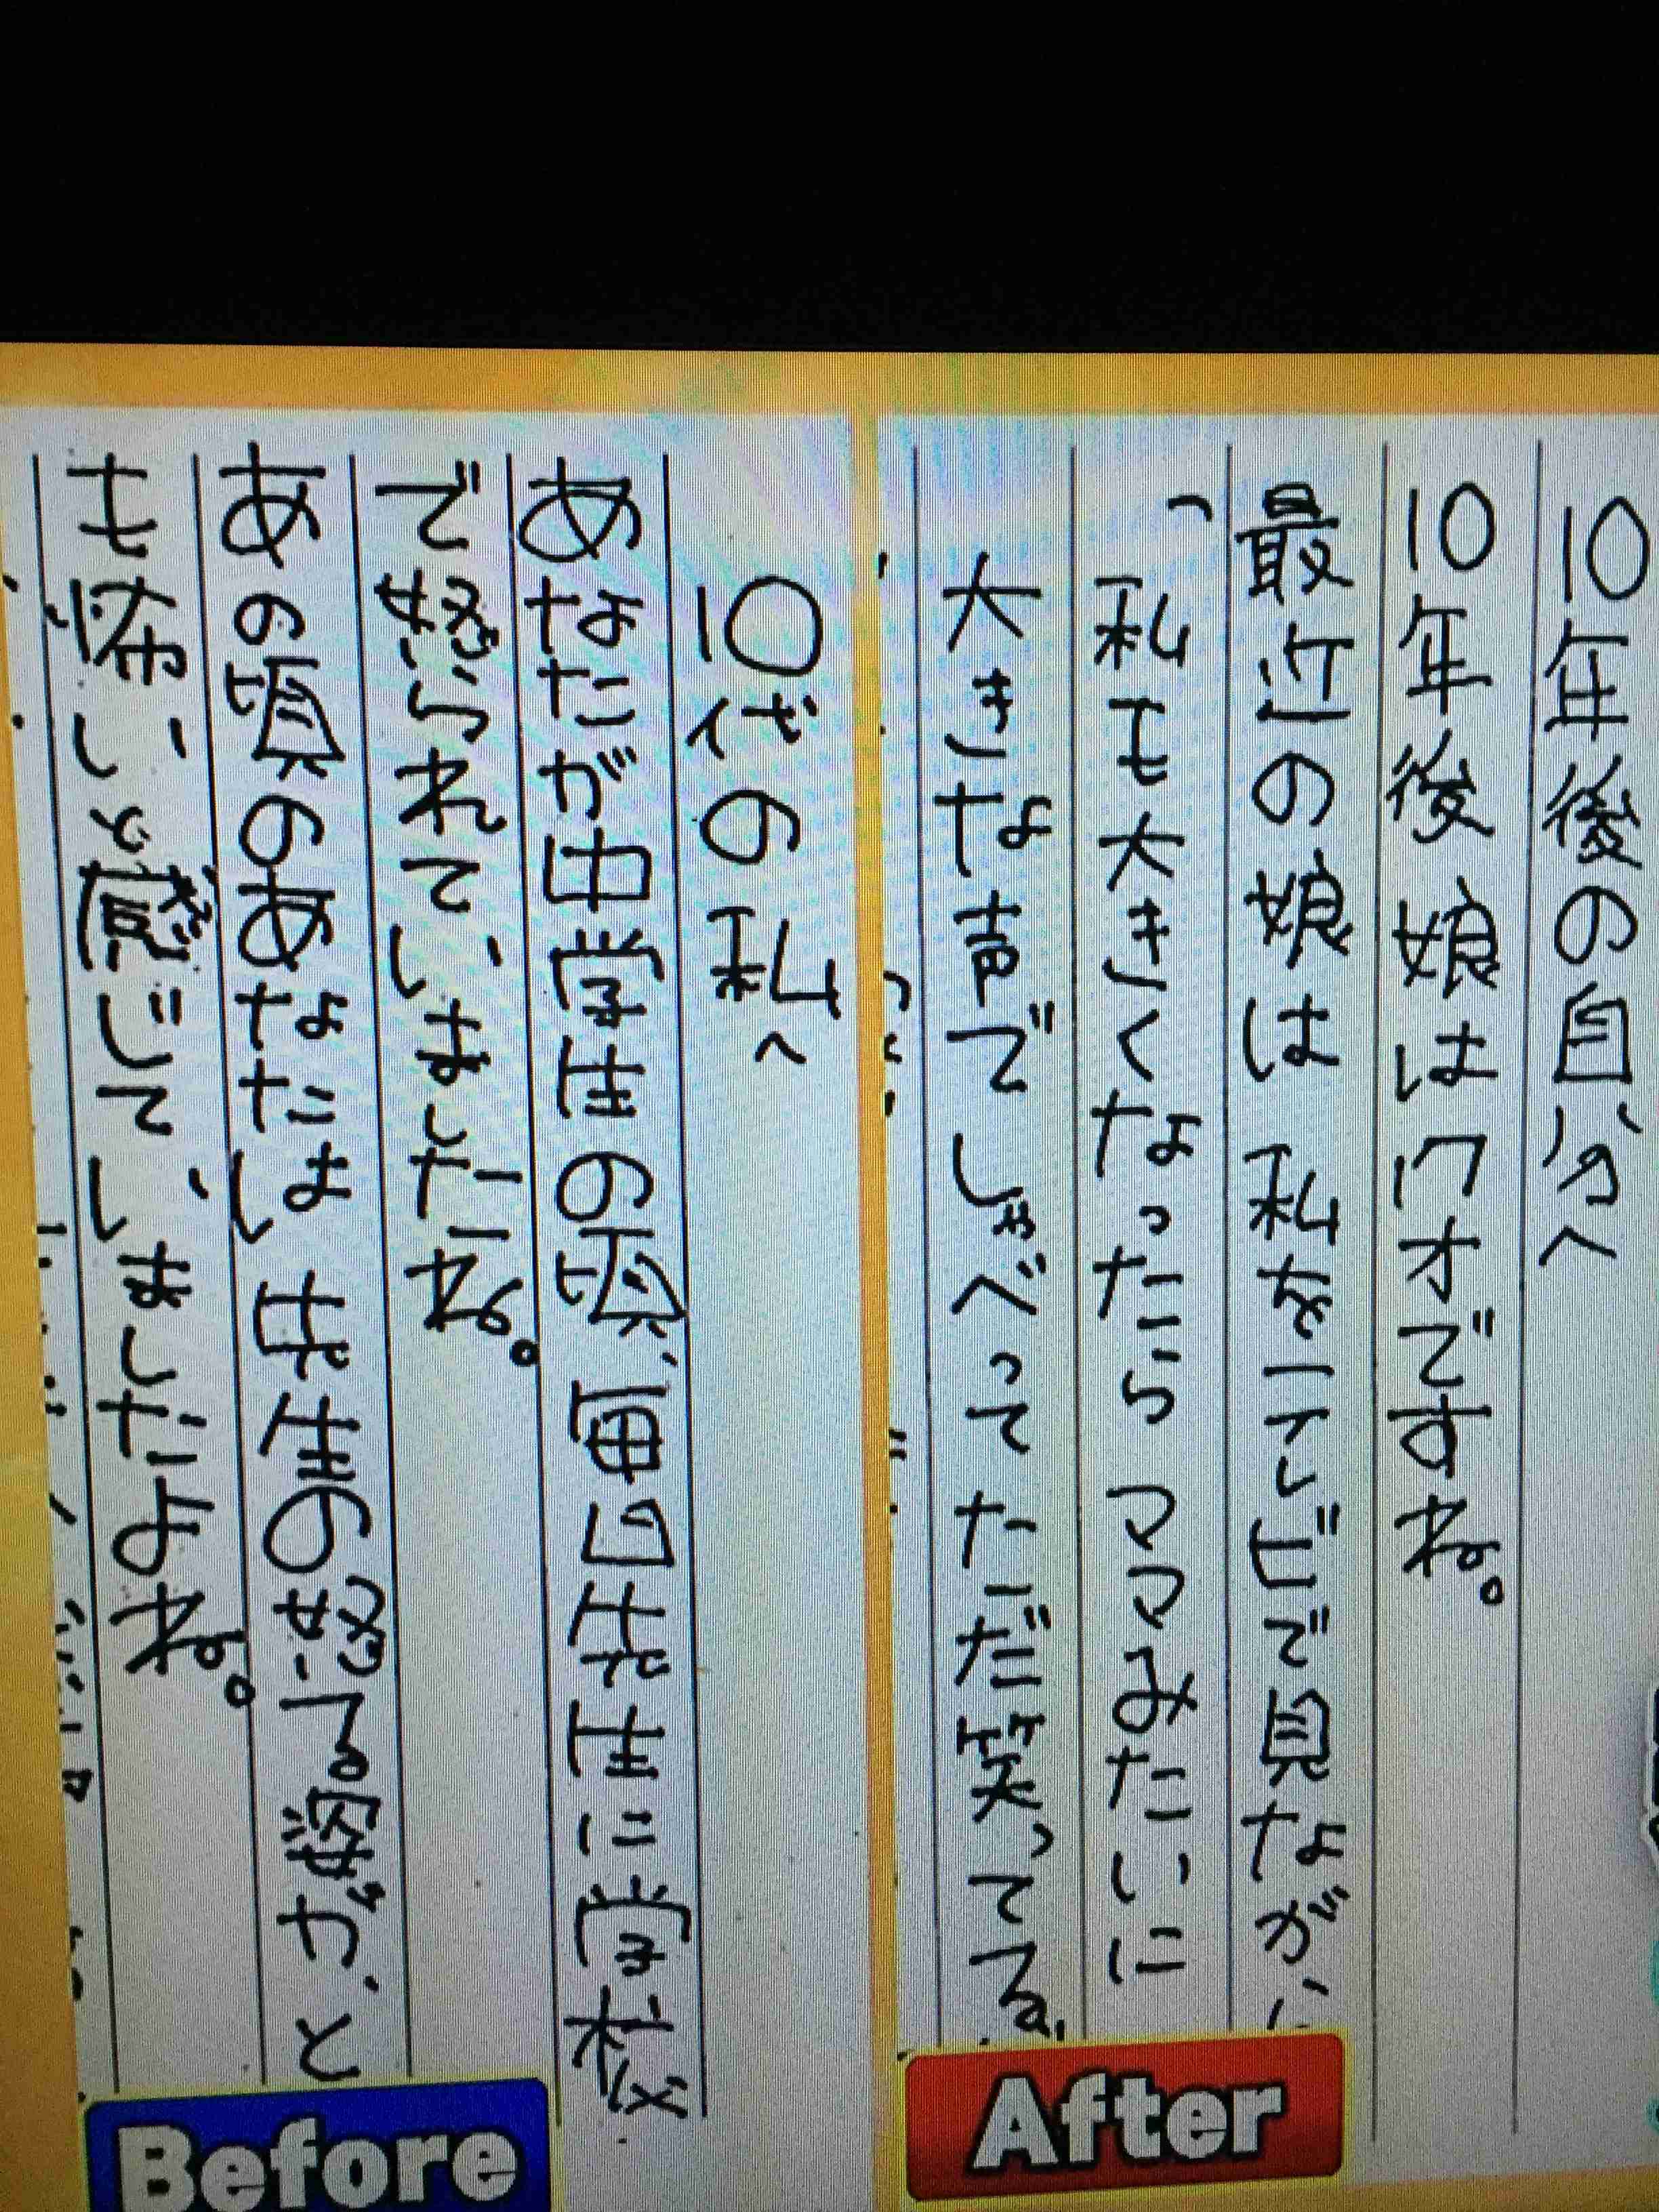 10年後の自分へ
10年後娘は17才ですね。
最近の娘は 私を で見ながら
「私も大きくなったら ママみたいに
大きな声で しゃべって ただ笑ってる
After
10代の私へ
あなたが中学生の頃、毎日先生に学校
で怒られていましたね。
あの頃のあなたは 先生の怒る が、と
ても いと感じていましたよね。
Before